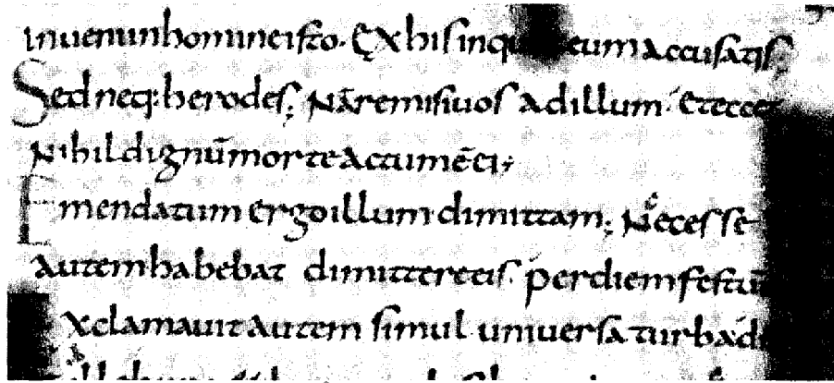 inueni in homine isto. Ex his in eum accusatis;
Sed neq: herodes; Nā remisi uos ad illum. Et ecce
Nihil dignū morte actum ē ei;
Emendatum ergo illum dimittam; Necesse
autem habebat dimittere eis. per diem festū
xclamauit autem simul uniuersa turba